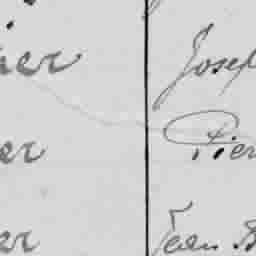 ier Josep
er Pier
er Jean B